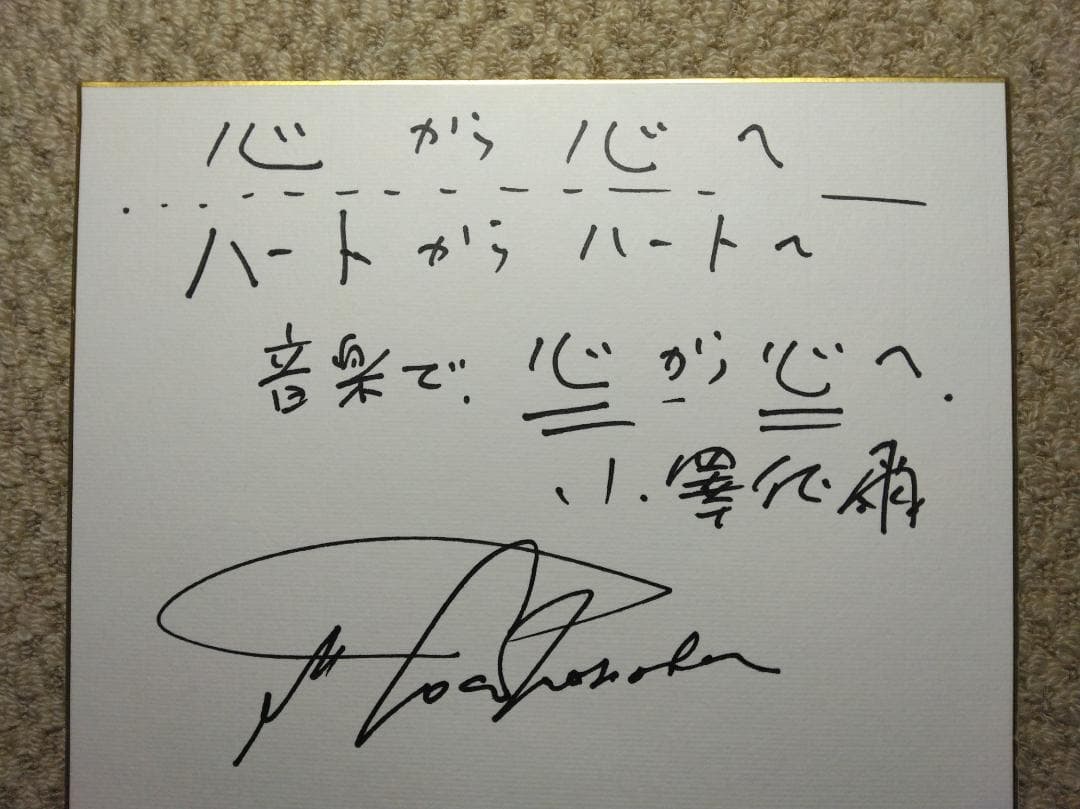 心から心へ
ハートからハートへ
音楽で、心から心へ.
小澤征爾